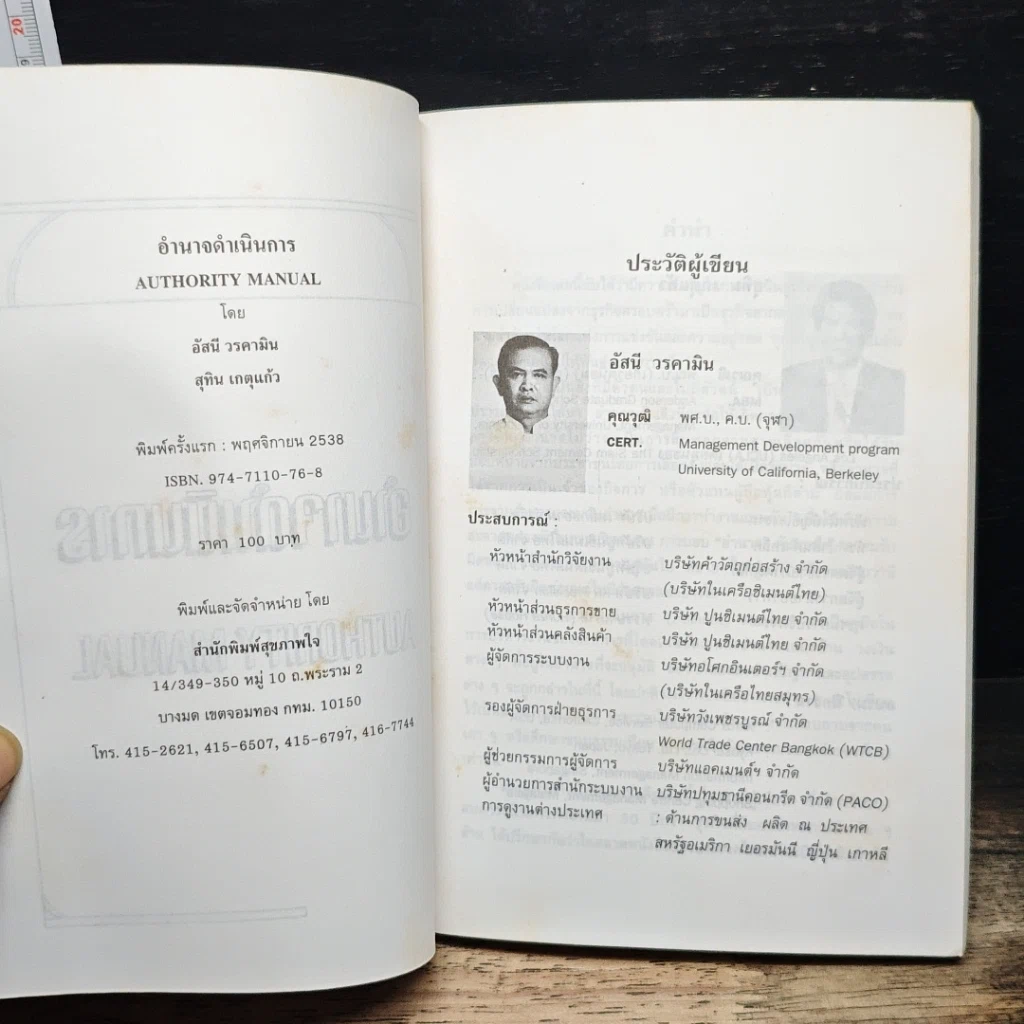 20
อำนาจดำเนินการ
AUTHORITY MANUAL
โดย
อัสนี วรคามิน
สุทิน เกตุแก้ว
พิมพ์ครั้งแรก : พฤศจิกายน 2538
ISBN. 974-7110-76-8
ราคา 100 บาท
พิมพ์และจัดจำหน่าย โดย
สำนักพิมพ์สุขภาพใจ
14/349-350 หมู่ 10 ถ.พระราม 2
บางมด เขตจอมทอง กทม. 10150
โทร. 415-2621, 415-6507, 415-6797, 416-7744
ประวัติผู้เขียน
อัสนี วรคามิน
คุณวุฒิ พศ.บ., ค.บ. (จุฬา)
CERT. Management Development program
University of California, Berkeley
ประสบการณ์ :
หัวหน้าสำนักวิจัยงาน บริษัทค้าวัตถุก่อสร้าง จำกัด
(บริษัทในเครือซิเมนต์ไทย)
หัวหน้าส่วนธุรการขาย บริษัท ปูนซิเมนต์ไทย จำกัด
หัวหน้าส่วนคลังสินค้า บริษัท ปูนซิเมนต์ไทย จำกัด
ผู้จัดการระบบงาน บริษัทอโศกอินเตอร์ฯ จำกัด
(บริษัทในเครือไทยสมุทร)
รองผู้จัดการฝ่ายธุรการ บริษัทวังเพชรบูรณ์ จำกัด
World Trade Center Bangkok (WTCB)
ผู้ช่วยกรรมการผู้จัดการ บริษัทแอคเมนต์ฯ จำกัด
ผู้อำนวยการสำนักระบบงาน บริษัทปทุมธานีคอนกรีต จำกัด (PACO)
การดูงานต่างประเทศ : ด้านการขนส่ง ผลิต ณ ประเทศ
สหรัฐอเมริกา เยอรมันนี ญี่ปุ่น เกาหลี